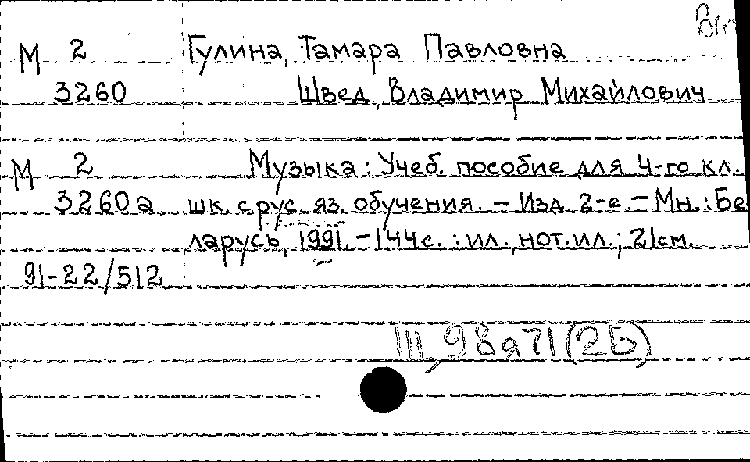 М 2 Гулина, Тамара Павловна
3260 Швед, Владимир Михайлович
М 2 Музыка: Учеб. пособие для 4-го кл.
3260а шк. с рус. яз. обучения. - Изд. 2-е. - Мн.: Бе
ларусь, 1991. - 144с. : ил., нот. ил.; 21см.
91-22/512
III, 98я71(2Б)